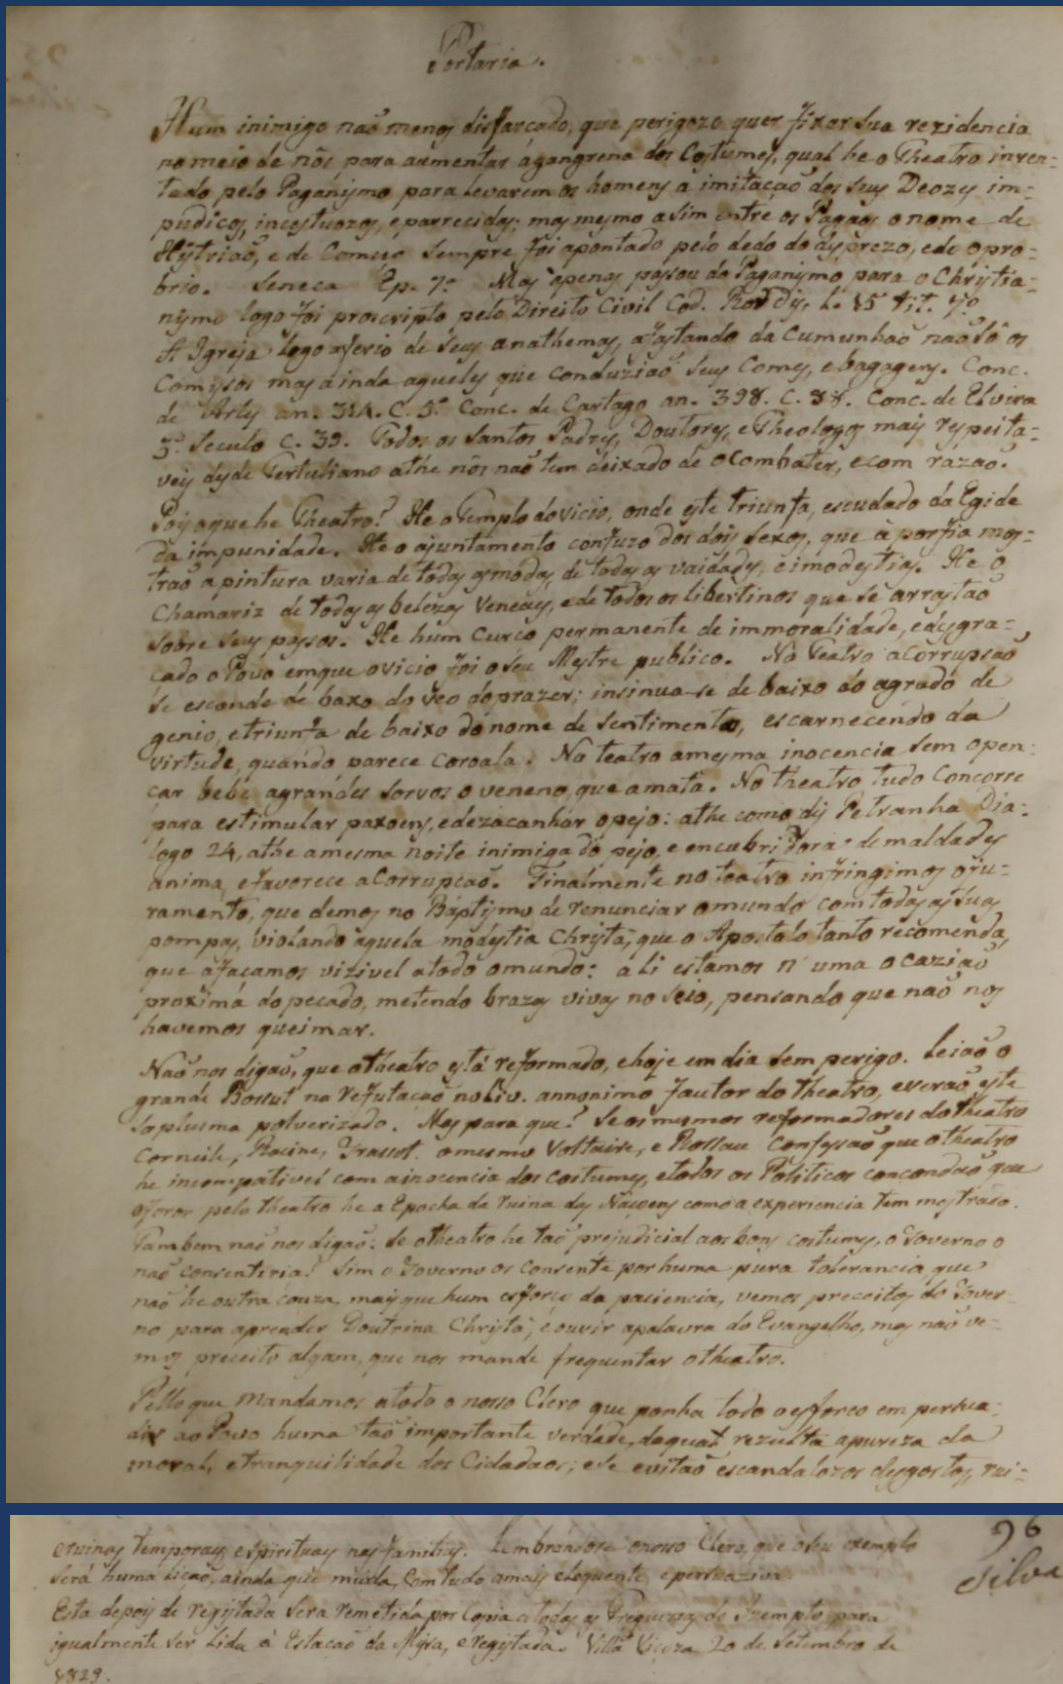 Portaria.
Hum inimigo naõ menos disfarcado, que perigozo quer fixar sua rezidencia
no meio de nôs para aumentar a gangrena dos Costumes, qual he o Theatro inven-
tado pelo Paganismo para levarem os homens a imitaçaõ dos seus Deozes im-
pudicos, incestuozos, e parrecidas; mas mesmo asim entre os Pagaos o nome de
Histriaõ, e de Comico sempre foi apontado pelo dedo do desprezo, e de opro-
brio. Seneca Ep. 7.ª Mas apenas pasou do Paganismo para o Christia-
nismo logo foi proscripto pelo Direito Civil Cod. L. 15 tit. 7.º
A Igreja logo o ferio de seus anathemas, afastando da Cumunhaõ naõ sô os
Comysos mas ainda aqueles que conduziaõ seus Comes, e bagagens. Conc.
de Arles an. 314. C. 5.º Conc. de Cartago an. 398. C. 88. Conc. de Elvira
3.º Seculo C. 39. Todos os Santos Padres, Doutores, e Theologos mais respeita-
veis desde Tertuliano athe nôs naõ tem deixado de o Combater, e com razaõ.
Pois a que he Theatro? He o Templo do vicio, onde este triunfa, escudado da Egide
da impunidade. He o ajuntamento confuzo dos dois sexos, que à porfia mos-
traõ a pintura varia de todas as modas, de todas as vaidades, e imodestias. He o
Chamariz de todas as belezas Veneas, e de todos os libertinos que se arrastaõ
sobre seus pasos. He hum Curco permanente de immoralidade, e desgra-
cado o Povo em que o vicio foi o seu Mestre publico. No Teatro a Corrupsaõ
se esconde de baxo do veo do prazer; insinua-se de baixo do agrado de
genio, e triunfa de baixo do nome de sentimento, escarnecendo da
virtude, quando parece coroala. No teatro a mesma inocencia sem open-
car bebe a grandes sorvos o veneno, que a mata. No theatro tudo Concorre
para estimular paxoens, e dezacanhar o pejo: athe como dis Petrarcha Dia-
logo 24, athe a mesma noite inimiga do pejo, e encubridora de maldades
anima, e favorece a Corrupcaõ. Finalmente no teatro infringimos o ju-
ramento, que demos no Baptismo de renunciar o mundo com todas as suas
pompas, violando aquela modestia Christã, que o Apostolo tanto recomenda,
que a facamos vizivel a todo o mundo: ali estamos n'uma ocaziaõ
proxima do pecado, metendo brazas vivas no seio, pensando que naõ nos
havemos queimar.
Naõ nos digaõ, que o theatro está reformado, e hoje em dia sem perigo. Leiaõ o
grande Bossut na refutaçaõ no Liv. annonimo fautor do theatro, e veraõ este
sophisma polverizado. Mas para que? Se os mesmos reformadores do theatro
Corneile, Racine, Grasset. o mesmo Voltaire, e Rossau Confesaõ que o theatro
he incompativel com a inocencia dos costumes, e todos os Politicos concordaõ que
o furor pelo theatro he a Epocha da ruina das Nacoens como a experiencia tem mostrado.
Tambem naõ nos digaõ: se o theatro he taõ prejudicial aos bons costumes, o Governo o
naõ consentiria! Sim o Governo os consente por huma pura tolerancia, que
naõ he outra couza, mais que hum esforço da paciencia, vemos preceitos do Gover-
no para aprender Doutrina Christã, e ouvir a palavra do Evangelho, mas naõ ve-
mos preceito algum, que nos mande frequentar o theatro.
Pello que Mandamos a todo o nosso Clero que ponha todo o esforco em persua-
dir ao Povo huma taõ importante verdade, da qual rezulta a pureza da
moral, e tranquilidade dos Cidadaos; e se evitaõ escandalozos desgostos, rui-
e ruinas temporaes, e spirituaes nas familias. Lembrandose o nosso Clero, que o seu exemplo
será huma liçaõ, ainda que muda, com tudo a mais eloquente, e persuaziva.
Esta depois de registada sera remetida por Copia a todas as Freguezias do Izempto para
igualmente ser Lida á Estaçaõ da Missa, e registada. Villa Viçoza 20 de Setembro de
1829.
96
Silva